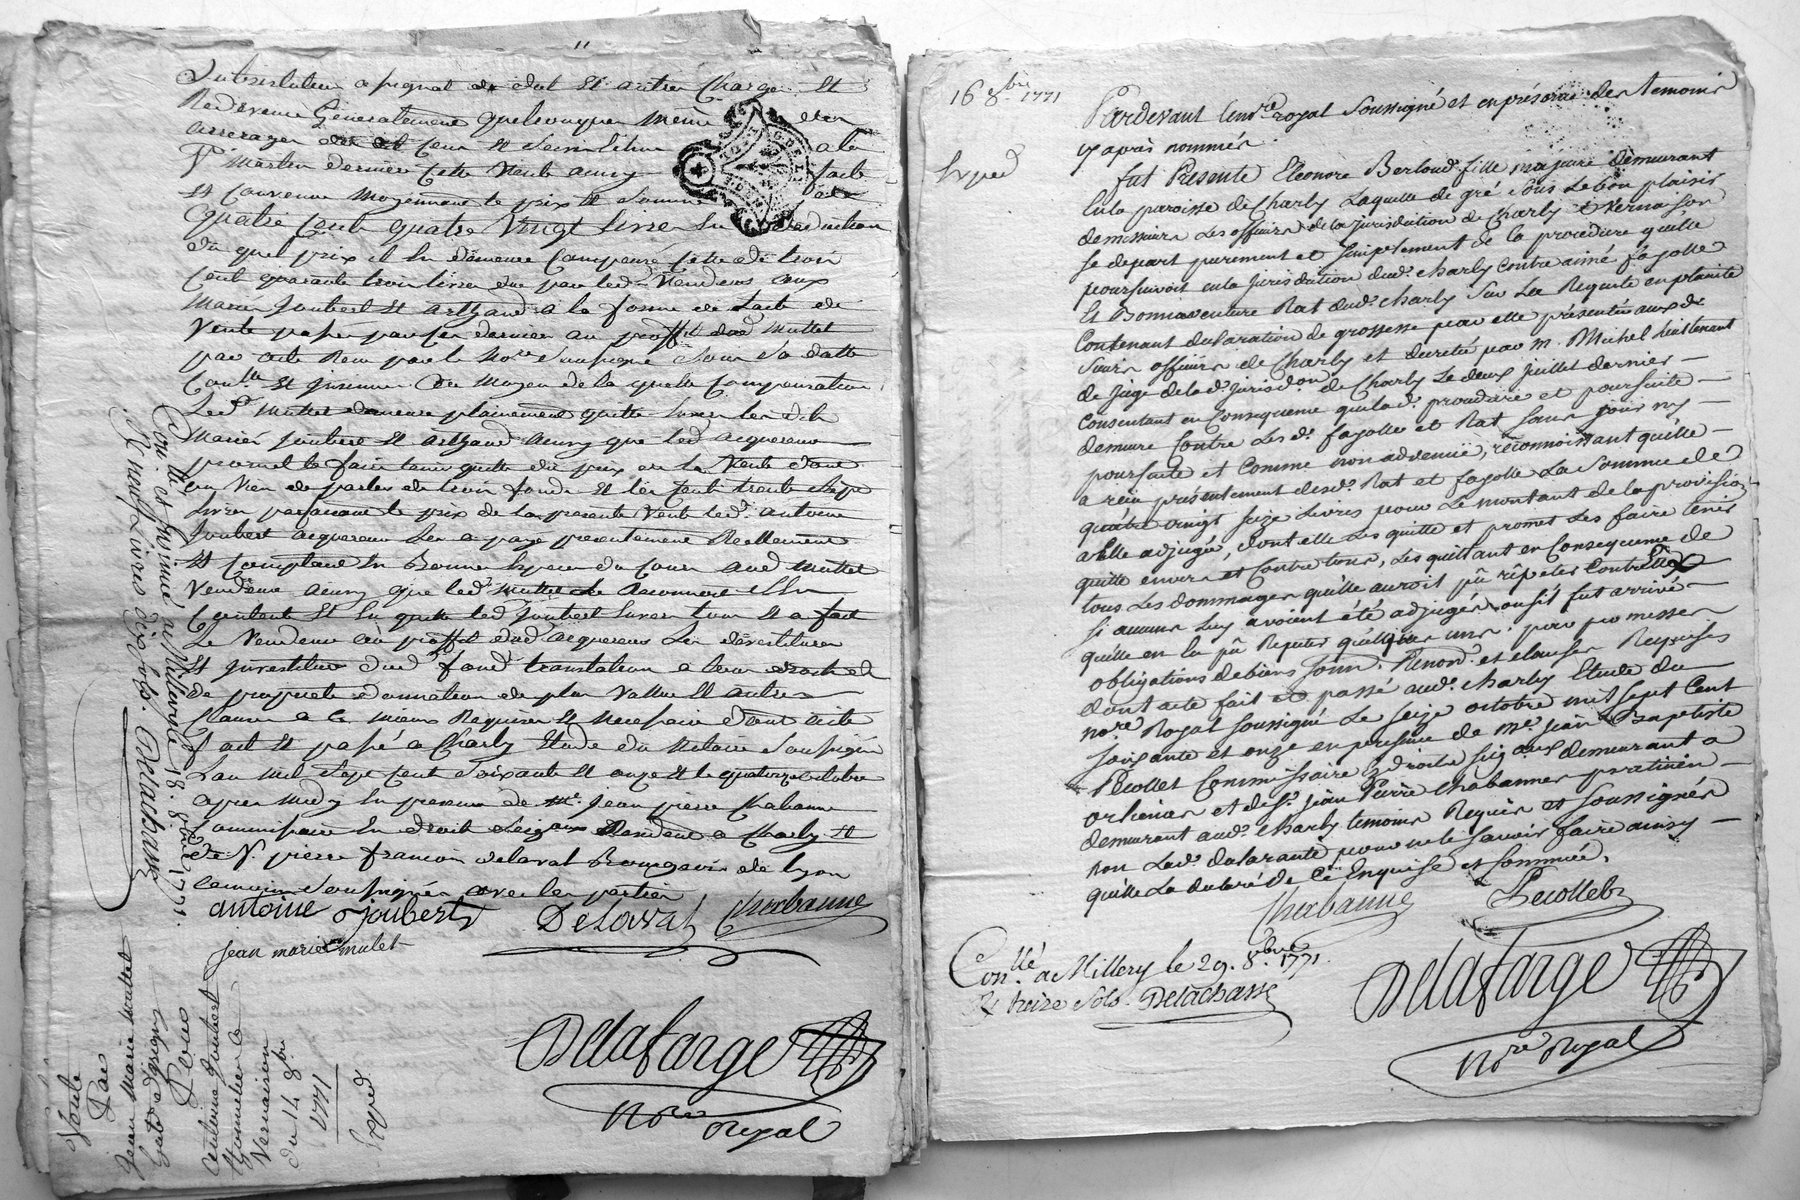 et autres charges et
Redevance Generalement quelconques même des
arrerages
St Martin dernier cette Vente ainsy faite
et convenue moyennant le prix et Somme de
Quatre Cent quatre Vingt livres en
du quel prix il en demeure Compensé Celle de trois
cent quarante trois livres due par led. Vendeur aux
Mariés Joubert et à la forme de l'acte de
Vente passé par ce dernier au proffit dud Mullet
par acte Reçu par le Nore Soussigné Sous Sa datte
Conllé et au moyen de la quelle Compensation
Led. Mullet demeure plainement quitte envers les dits
Mariés Joubert et ainsy que led acquereur
promet le faire tenir quitte
et les Cent trente Sept
Livres parfaisant le prix de la presente Vente led. antoine
Joubert acquereur les a payé presentement Reellement
et Comptant en Bonnes Especes du Cours aud Mullet
Vendeur ainsy que led. Mullet le Reconnoit
Content et en quitte led Joubert envers tous et a fait
Le Vendeur au proffit dud acquereur les devestitures
et Investitures dud. fond translation
de propriete donnation de plus Value et autres
Clauses a ce mieux Requises et necessaires dont acte
fait et passé a Charly Etude du Notaire Soussigné
L'an mil Sept Cent Soixante et onze et le quatorze octobre
apres midy en presence de Me. Jean pierre Chabanne
Commissaire en droits Seigaux demeurant a Charly et
de Sr. pierre françois delaval Bourgeois de Lyon
temoins Soussignés avec les parties
antoine Joubert Delaval Chabanne
Jean marie mulet
Delafarge
Nore royal
Conllé et insinué a Millery le 18. 8bre 1771.
R neuf livres dix sols. Delachasse
Vente
Par
Jean Marie Mullet
Pour
antoine Joubert
Vernaison
du 14 8bre
1771
Exped.
16 8bre 1771
Exped
Pardevant le nore royal Soussigné et en présence des temoins
cy après nommés
fut Presente Eleonore Berloud fille majeure demeurant
en la paroisse de Charly Laquelle de gré Sous Le bon plaisir
de messieurs Les officiers de la Jurisdiction de Charly & Vernaison
Se départ purement et Simplement de la procedure quelle
poursuivoit en la Jurisdiction dud. charly contre aimé fayolle
Et Bonnaventure Rat dud. charly Sur La Requete en plainte
Contenant declaration de grossesse par elle présentée aux ds.
Sieurs officiers de Charly et decretée par m. Michel lieutenant
de Juge de lad. Jurison. de Charly Le deux juillet dernier —
Consentant en Consequence que lad. procedure et poursuite —
demeure Contre Les ds. fayolle et Rat Sans
poursuite et comme non advenüe, reconnoissant quelle —
a reçu présentement desds. Rat et fayolle La Somme de
quatre vingt Seize Livres pour Le montant de la provision
a Elle adjugée, dont elle Les quitte et promet Les faire tenir
quitte envers et contre tous, Les quittant en Consequence de
tous Les dommages quelle auroit pû rêpeter Contre Eux
Si aucuns Luy avoient été adjugés ou s'il fut arrivé —
quelle en La pû Repeter quelques uns. par promesses
obligations de biens Soum. Renonc. et clauses Requises
dont acte fait et passé aud. charly Etude du
nore. Royal Soussigné Le Seize octobre mil Sept Cent
Soixante et onze en presence de me. jean Baptiste
Pecollet Commissaire Es droits Seigaux demeurant a
orlienas et de Sr. jean Pierre chabannes praticien —
demeurant aud. charly temoins Requis et Soussignés
non Lad. declarante pour ne le Savoir faire ainsy —
quelle La declaré de Ce Enquise et Sommée.
Chabanne Pecollet
Conllé a Millery le 29. 8bre 1771
R treize Sols. Delachasse
Delafarge
Nore royal